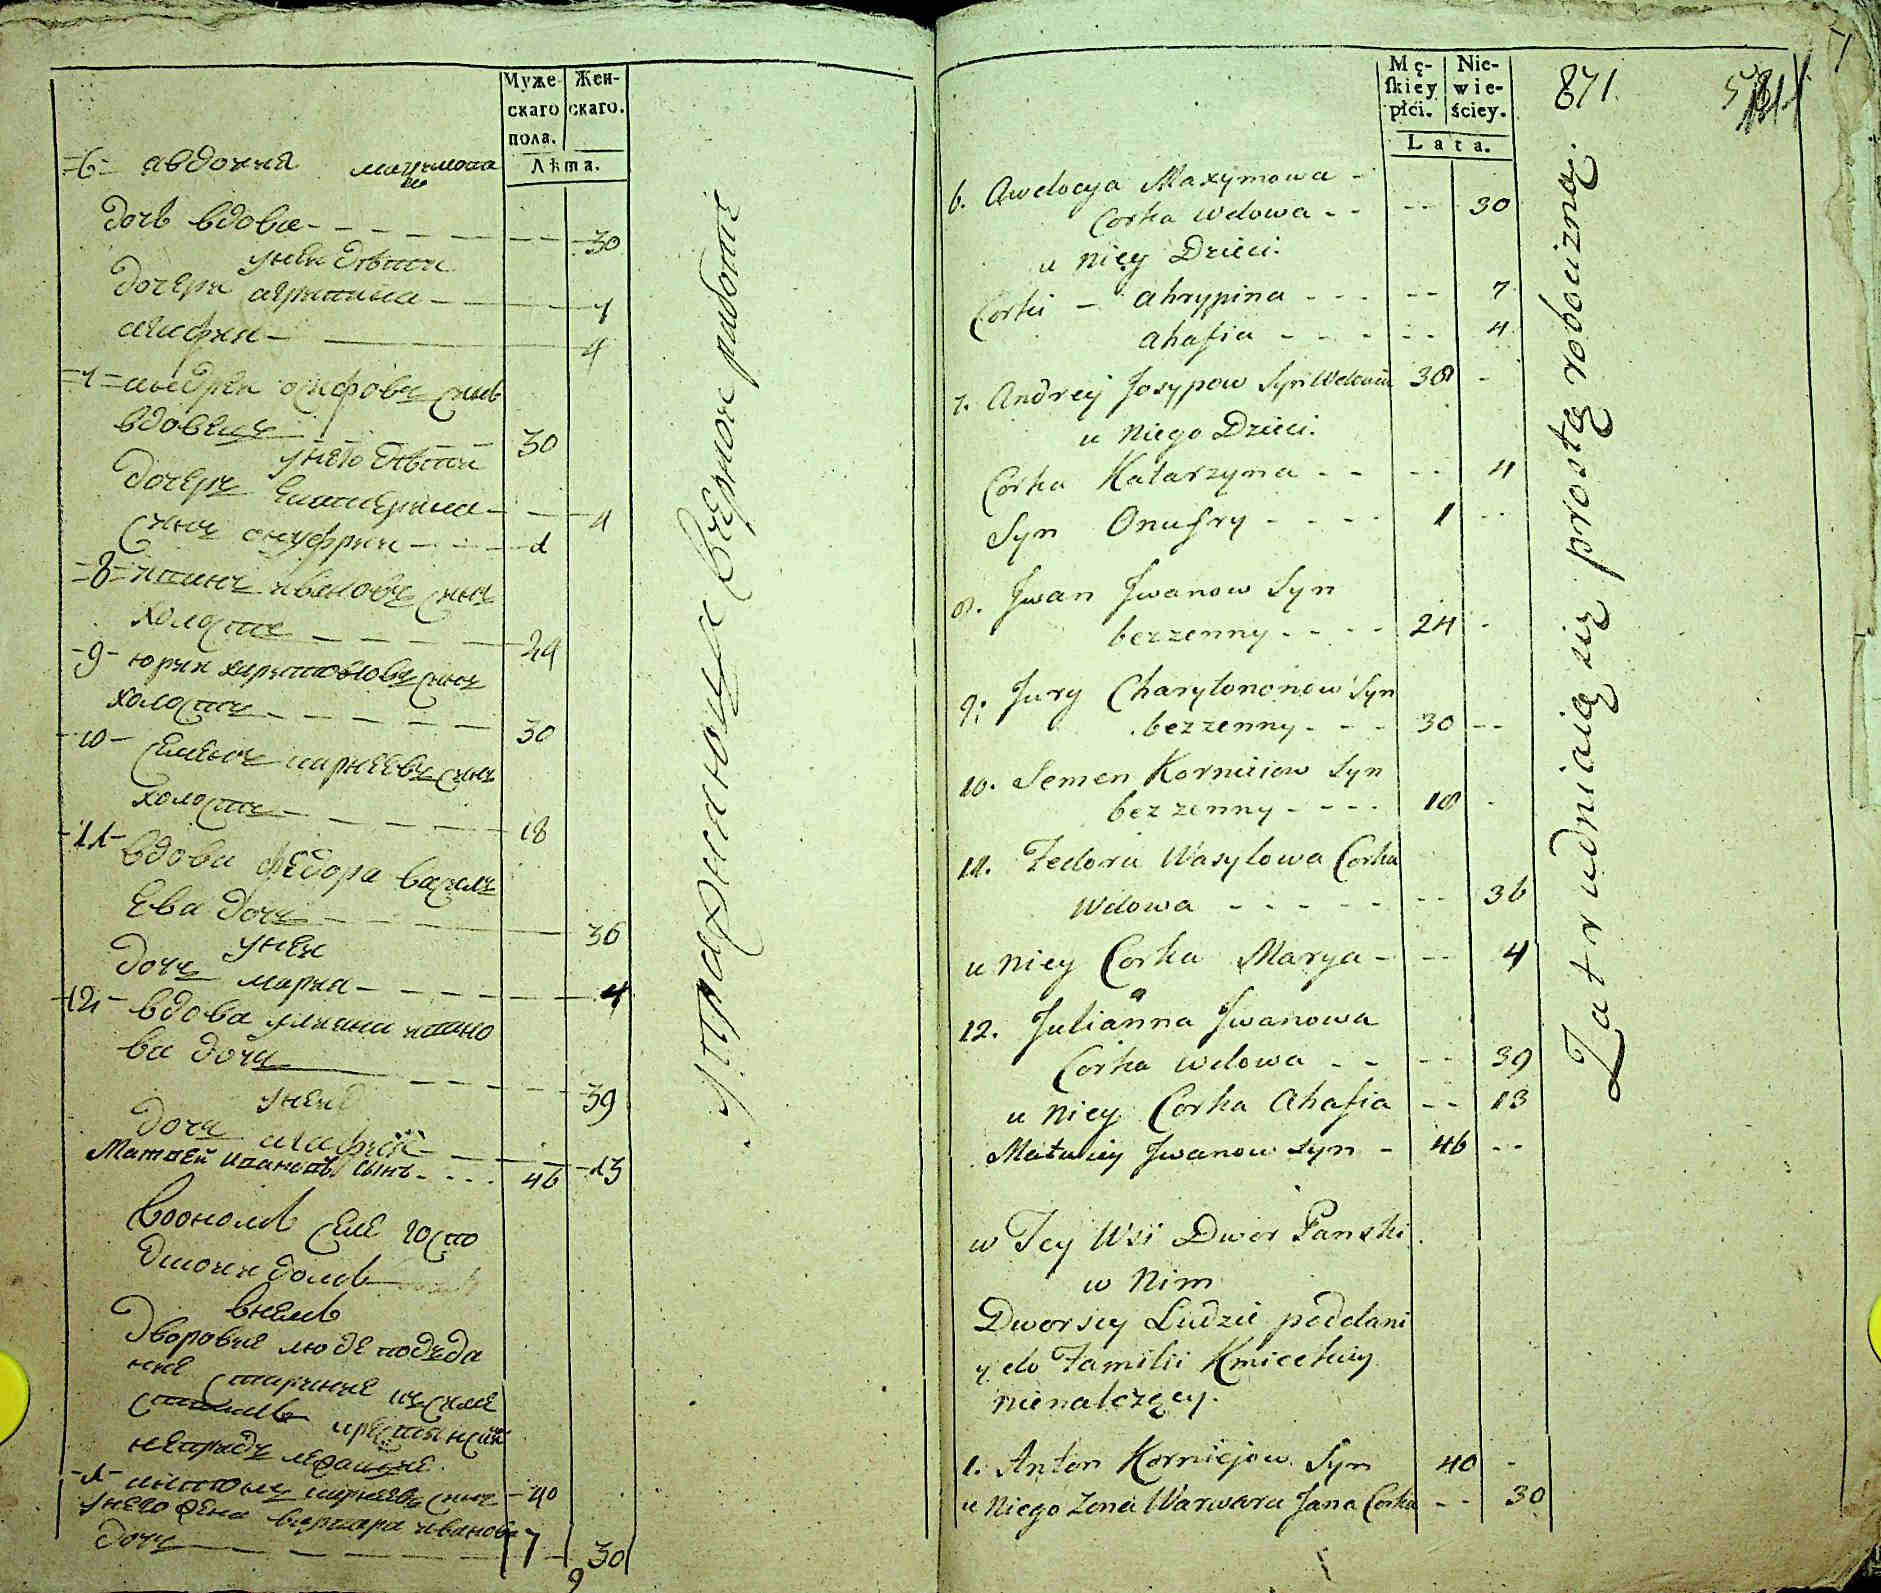 Муже-
скаго
пола.
Жен-
скаго.
Лѣта.
=6= авдотия максимова
дочь вдова - - - - 30
унеи дѣти
дочери агрипина - 7
агафия - 4
=7= андреи осиповъ сынъ
вдовецъ - 30
унего дѣти
дочеръ екатерина - 4
сынъ онуфрии - - - 1
=8= иванъ ивановъ сынъ
холостъ - - - - 24
-9- юрии харитоновъ сынъ
холостъ - - - - 30
-10- семенъ корнеевъ сынъ
холостъ - - - - 18
-11- вдова федора василь
ева дочь - - - 36
унеи
дочь мария - - - - 4
-12- вдова улиана ивано
ва дочь - - - - 39
унеи
дочь агафия - - - 13
Матвей Ивановъ Сынъ - - - - 46
Воономъ селе госпо
дской домъ
внемъ
Дворовые люде подъда
ные
крестьянски
непринадлежащие
-1- антонъ корнеевъ сынъ - 40
унего жена варвара иванова
дочь - - - - 30
7
9
упражняются вчерной работе
Mę-
skiey
płći.
Nie-
wie-
ściey.
Lata.
871.
7
6. Awdocya Maxymowa -
Corka wdowa - - - - 30
u niey Dzieci.
Corki - ahrypina - - - - - 7
ahafia - - - - - - 4
7. Andrey Josypow Syn Wdowiec 30 -
u Niego Dzieci.
Corka Katarzyna - - - - 4
Syn Onufry - - - - 1 - -
8. Jwan Jwanow Syn
bezzenny - - - - 24 -
9. Jury Charytononow Syn
bezzenny - - - 30 - -
10. Semen Korneiow Syn
bez zenny - - - - 18 -
11. Fedora Wasylowa Corka
Wdowa - - - - - - - - 36
u niey Corka Marya - - - 4
12. Julianna Jwanowa
Corka wdowa - - - - 39
u niey Corka Ahafia - - 13
Matwiey Jwanow syn - 46 - -
w Tey Wsi Dwor Panski
w Nim
Dworscy Ludzie poddani
y do Familii Kmieckiey
nienalezący.
1. Anton Korniejow Syn 40 -
u Niego Zona Warwara Jana Corka - - 30
Zatrudniaią się prostą robocizną.